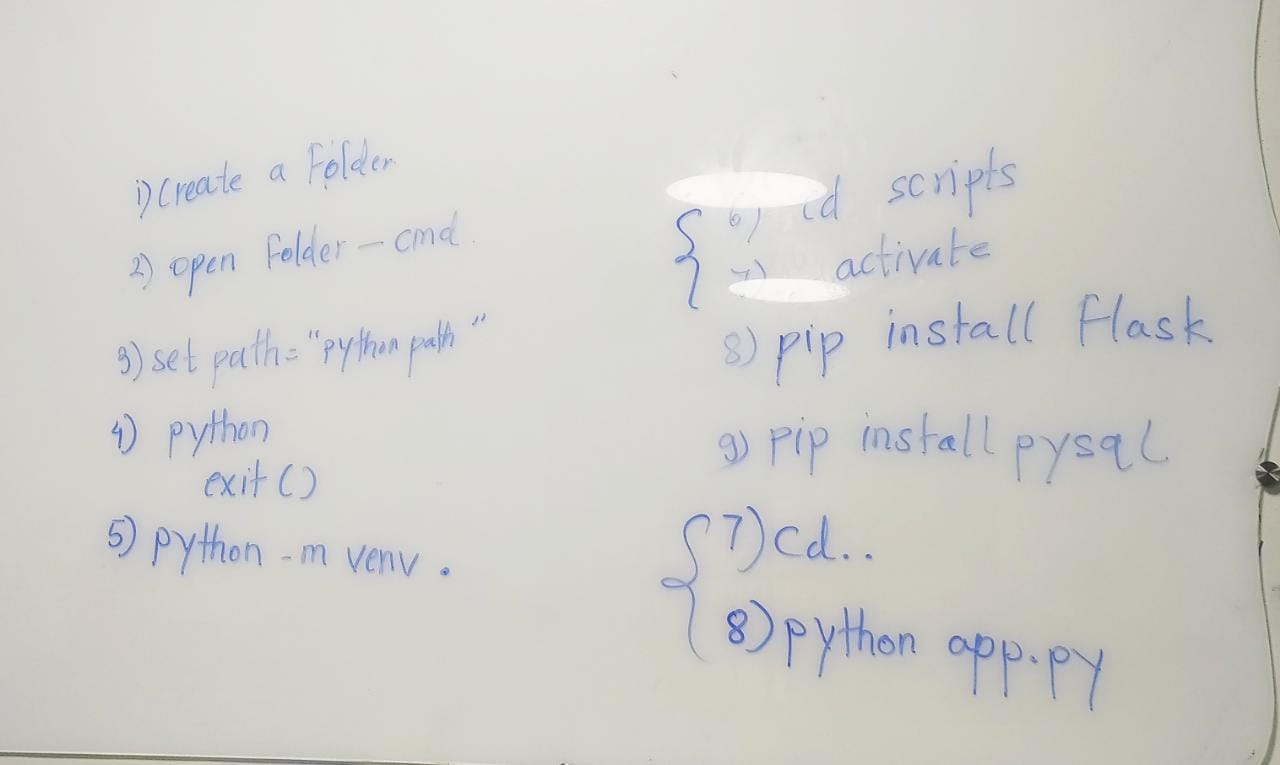 1) Create a Folder
2) open Folder - cmd
3) set path = "python path"
4) python
exit ()
5) python -m venv .
6) cd scripts
7) activate
8) pip install Flask
9) pip install pysql
7) cd..
8) python app.py